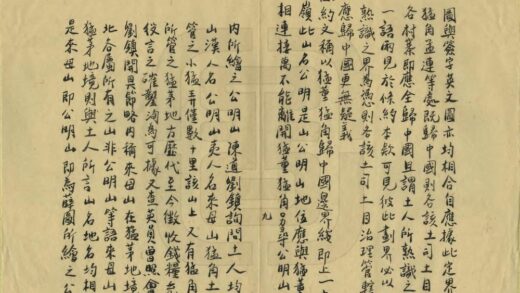 圖與蠻字英文圖亦均相合自應據此定界
猛角孟連等處既歸中國則各該土司土目
各村寨即應全歸中國且謂土人所熟識之
一語兩見於條約本款可見彼此劃界必以
熟識之界為憑則各該土司土目治理管轄
應歸中國更無疑義
約文稱以猛董猛角歸中國邊界綫即上一
嶺此山名公明是山公明山地位應與猛董
相連接萬不能離開猛董猛角另尋公明山
九
內所繪之公明山陳道劉鎮詢問土人均
山漢人名公明山夷人名來母山猛角土
管之小猛弄僅數十里該山上又有猛角
所管之猛茅地方歷代至今徵收錢糧
役言之確鑿為可據又查英員曾照會
劉鎮開具節略內稱來母山在猛茅地境
北各屬所有之山非公明山等語來母山
猛茅地境則與土人所言山名地名均相
是來母山即公明山即馬圖所繪之公